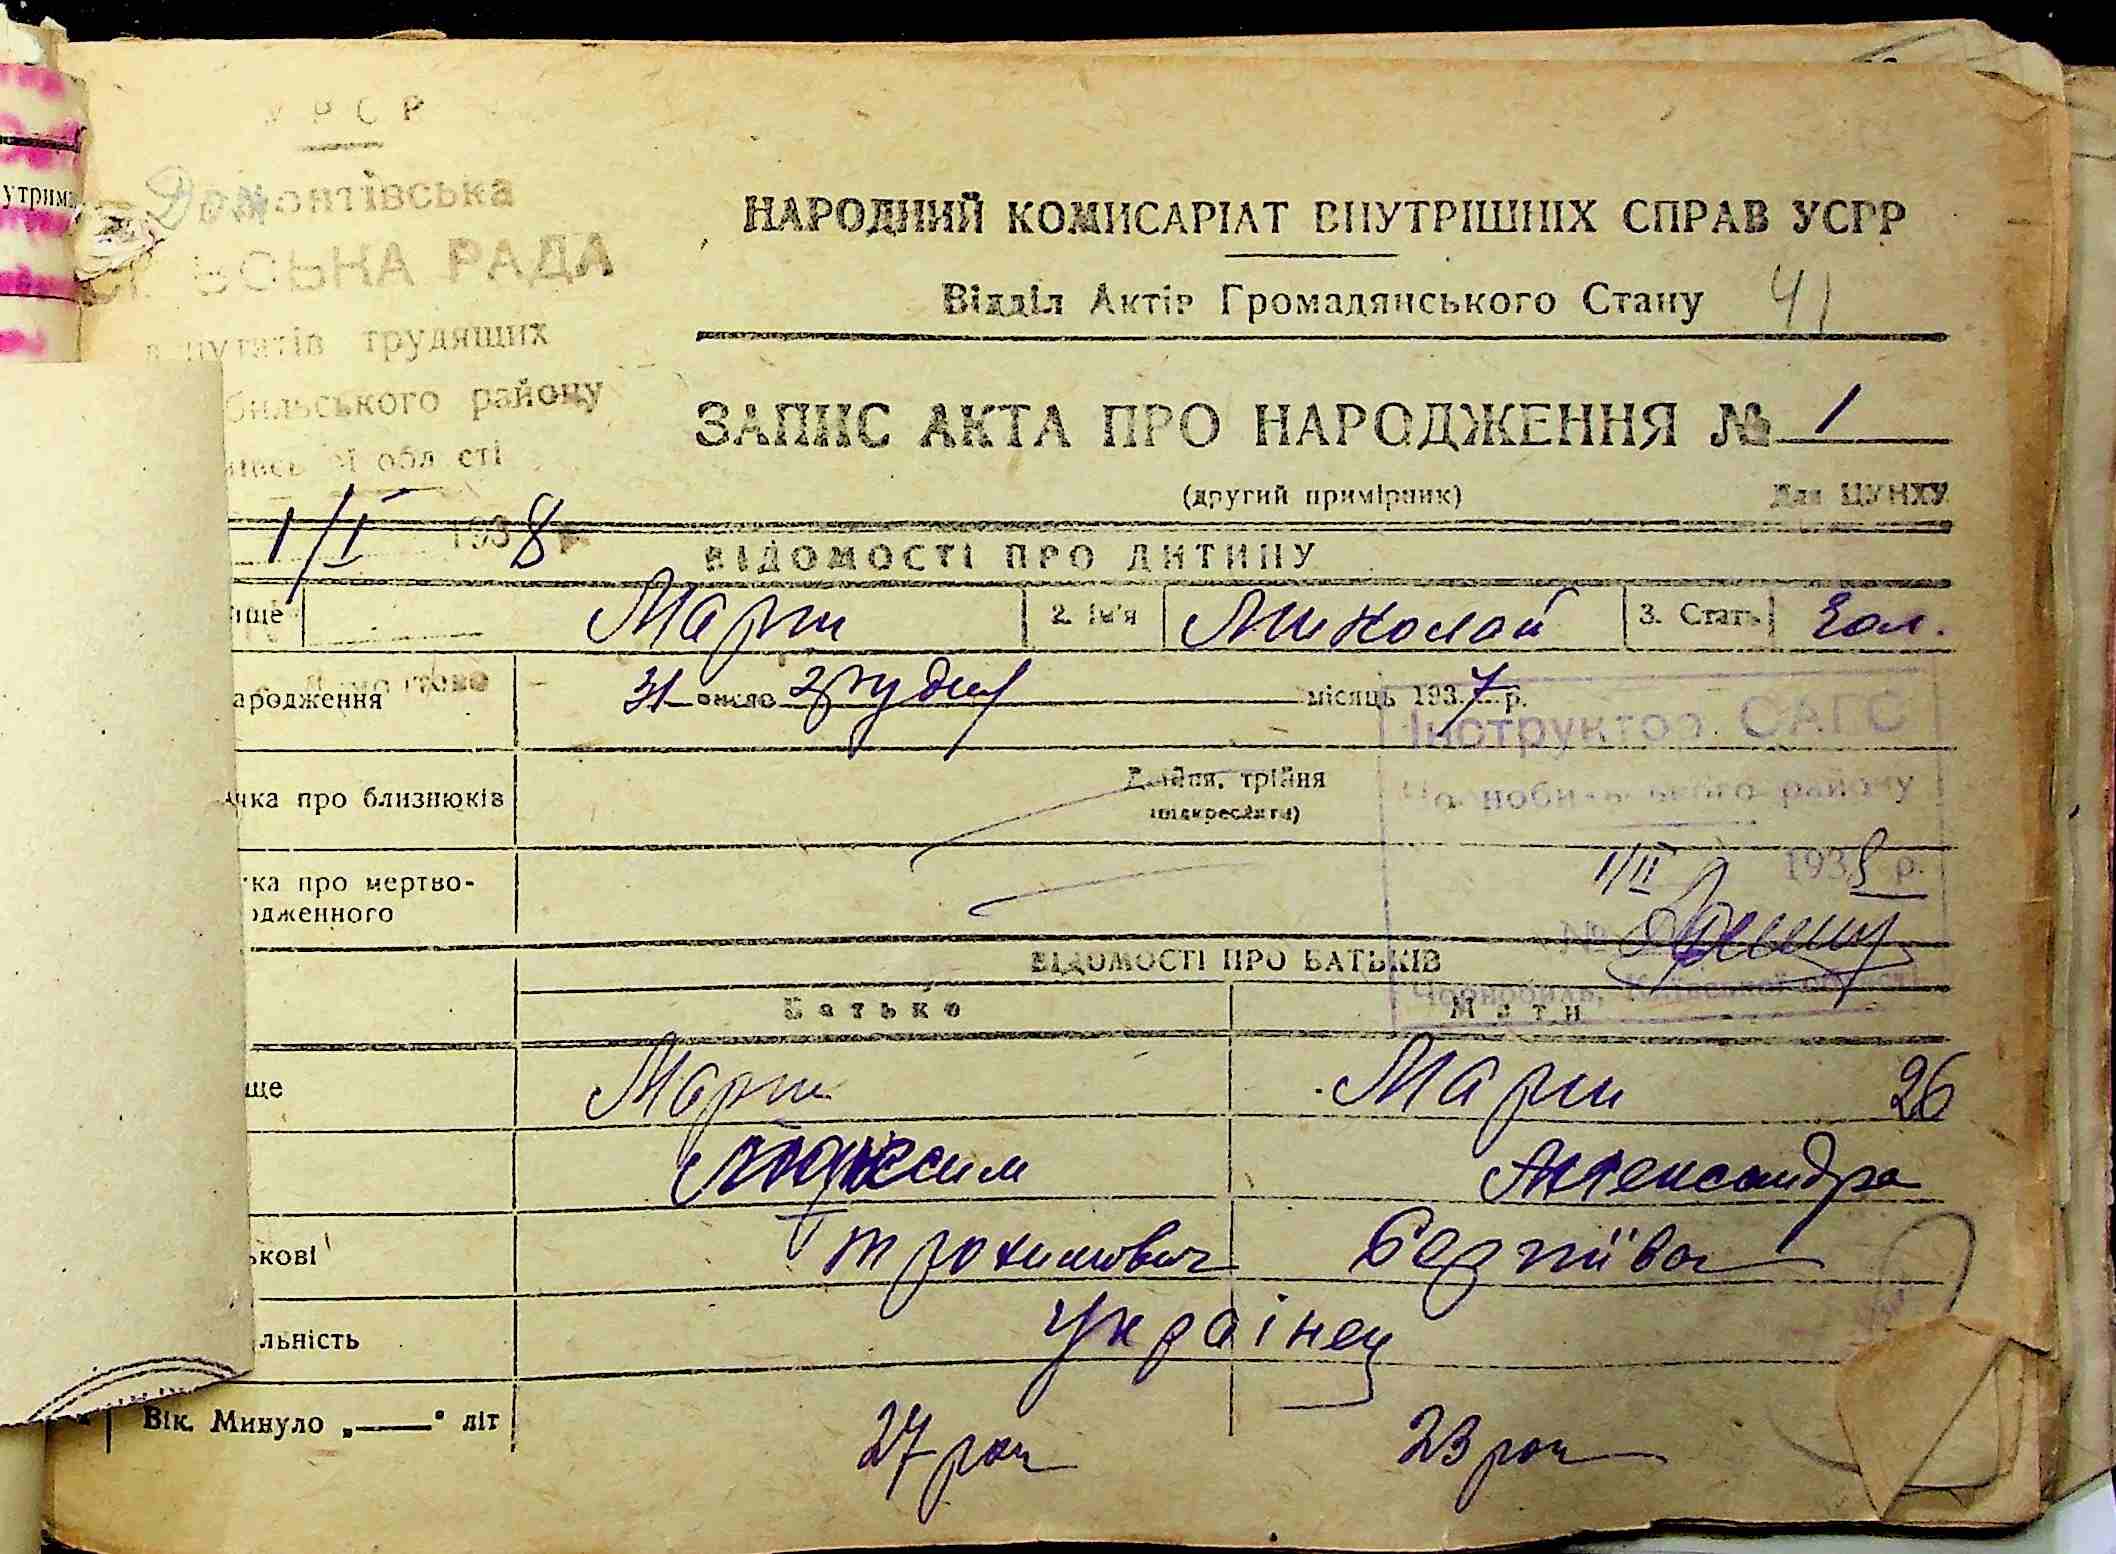 УРСР
Домонтівська
РАДА
трудящих
бильського району
1/I 1938
утрим
НАРОДНИЙ КОМИСАРІАТ ВНУТРІШНІХ СПРАВ УСРР
Відділ Актів Громадянського Стану 41
ЗАПИС АКТА ПРО НАРОДЖЕННЯ № 1
(другий примірник) Для ЦУНХУ
ВІДОМОСТІ ПРО ДИТИНУ
ище Марти 2. Ім'я Миколай 3. Стать чол.
ародження 31 число грудня місяць 1937 р.
чка про близнюків Двійня, трійня
(підкреслити)
тка про мертво-
одженного
Інструктор САГС
Чорнобильського району
1/II 1938 р.
№
Чорнобиль, Київської області
ВІДОМОСТІ ПРО БАТЬКІВ
Батько Мати
ще Марти Марти 26
Максим Александра
ькові Трохимович Сергіївна
льність Українец
Вік. Минуло „—“ літ 27 рок 23 рок